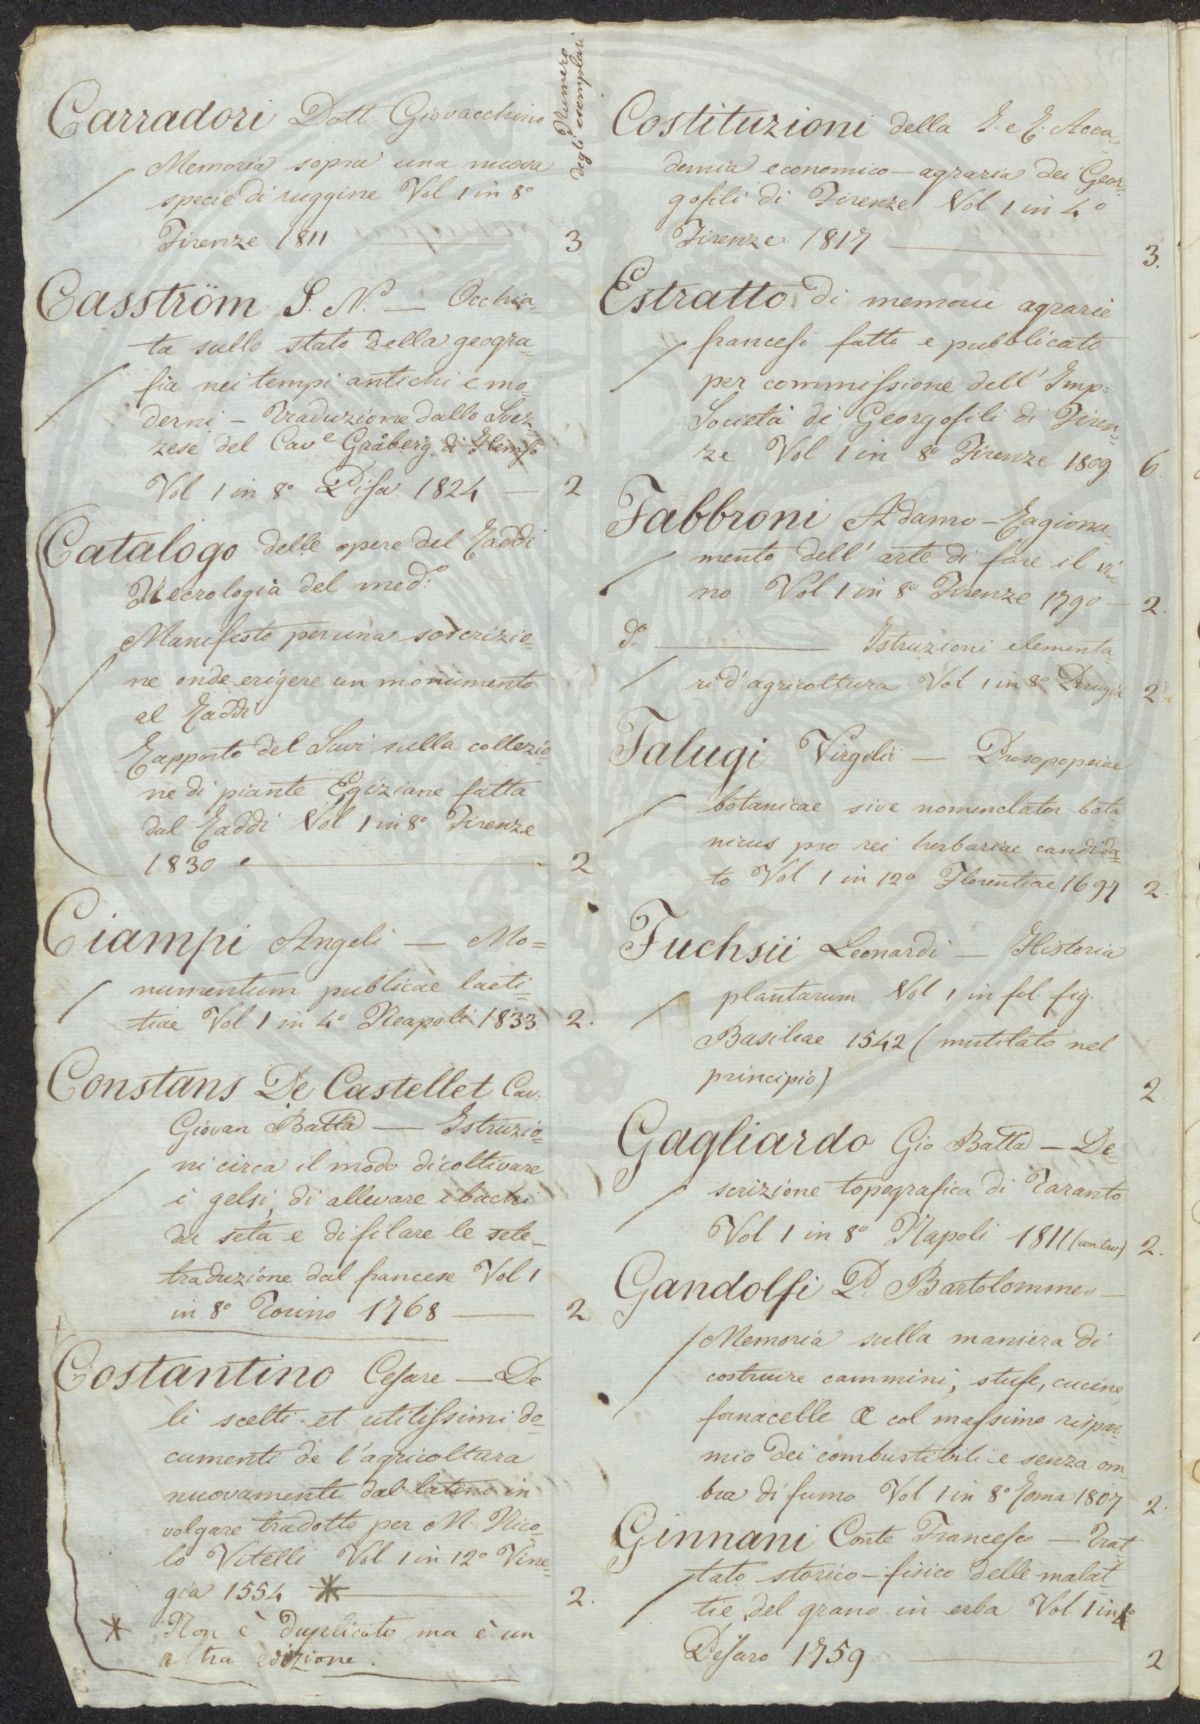 Numero
degli esemplari
Carradori Dott. Giovacchino
Memoria sopra una nuova
specie di ruggine Vol 1 in 8°
Firenze 1811 — 3
Casström S. N. — Occhia-
ta sullo stato della geogra-
fia nei tempi antichi e mo
derni — Traduzione dallo Svez-
zese del Cav.e Gråberg di Hemsö
Vol 1 in 8° Pisa 1824 — 2
Catalogo delle opere del Raddi
Necrologia del med.°
Manifesto per una soscrizio-
ne onde erigere un monumento
al Raddi
Rapporto del Savi sulla collezio-
ne di piante Egiziane fatta
dal Raddi Vol 1 in 8° Firenze
1830 — 2
Ciampi Angeli — Mo=
numentum publicae laeti-
tiae Vol 1 in 4° Neapoli 1833 2.
Constans De Castellet Cav.
Giovan Batta — Istruzio-
ni circa il modo di coltivare
i gelsi, di allevare i bachi
da seta e di filare le sete-
traduzione dal francese Vol 1
in 8° Torino 1768 — 2
Costantino Cesare — De
li scelti et utilissimi do-
cumenti de l'agricoltura
nuovamente dal latino in
volgare tradotto per M. Nico-
lò Vitelli Vol 1 in 12° Vine-
gia 1554 * — 2.
* Non è duplicato ma è un
altra edizione.
Costituzioni della I. e R. Acca-
demia economico-agraria dei Geor-
gofili di Firenze Vol 1 in 4°
Firenze 1817 — 3.
Estratto di memorie agrarie
francesi fatto e pubblicato
per commissione dell'Imp:
Società di Georgofili di Firen-
ze Vol 1 in 8° Firenze 1809 6
Fabbroni Adamo — Ragiona-
mento dell'arte di fare il vi-
no Vol 1 in 8° Firenze 1790 — 2.
d.° — Istruzioni elementa-
ri d'agricoltura Vol 1 in 8° Perugia 2
Falugi Virgilii — Prosopopoeiae
botanicae sive nomenclator bota-
nicus pro rei herbariae candida-
to Vol 1 in 12° Florentiae 1697 2.
Fuchsii Leonardi — Historia
plantarum Vol 1 in fol. fig.
Basileae 1542 (mutilato nel
principio) 2
Gagliardo Gio Batta — De-
scrizione topografica di Taranto
Vol 1 in 8° Napoli 1811 2.
Gandolfi P. Bartolommeo —
Memoria sulla maniera di
costruire cammini, stufe, cucine,
fornacelle &c col massimo rispar-
mio dei combustibili e senza om-
bra di fumo Vol 1 in 8° Roma 1807 2.
Ginnani Conte Francesco — Trat-
tato storico-fisico delle malat-
tie del grano in erba Vol 1 in 4°
Pesaro 1759 — 2